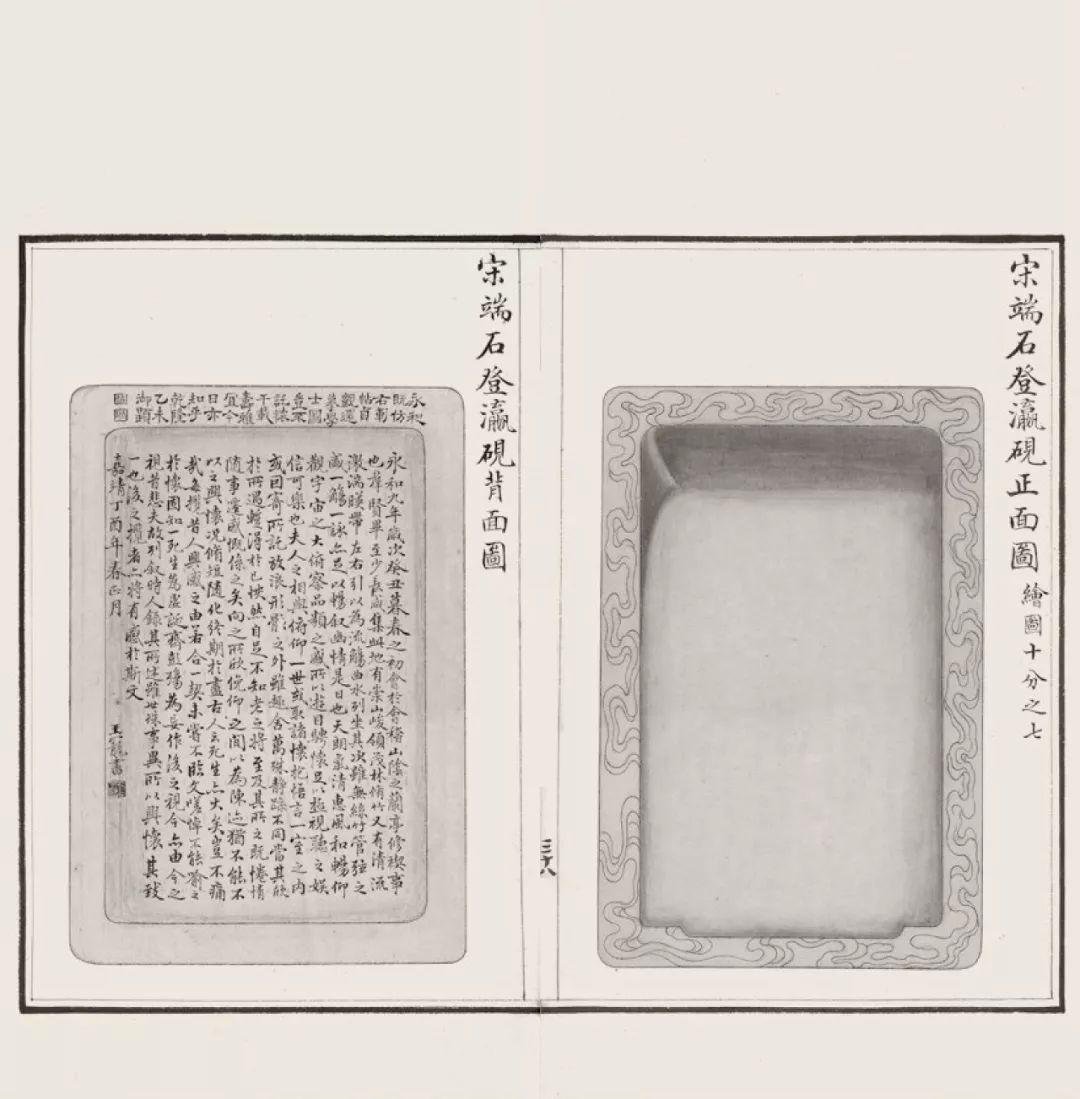 宋端石登瀛硯正面圖 繪圖十分之七
宋端石登瀛硯背面圖
永和
既仿
右軍
帖自
觀還
萃學
士圖
豈不
託懷
千載
壽雖
宜今
日亦
知乎
乾隆
乙未
御題
永和九年歲次癸丑暮春之初會於會稽山陰之蘭亭修禊事
也羣賢畢至少長咸集此地有崇山峻領茂林脩竹又有清流
激湍暎帶左右引以為流觴曲水列坐其次雖無絲竹管弦之
盛一觴一詠亦足以暢叙幽情是日也天朗氣清惠風和暢仰
觀宇宙之大俯察品類之盛所以遊目騁懷足以極視聽之娛
信可樂也夫人之相與俯仰一世或取諸懷抱悟言一室之內
或因寄所託放浪形骸之外雖趣舍萬殊静躁不同當其欣
於所遇蹔得於己怏然自足不知老之將至及其所之既惓情
隨事遷感慨係之矣向之所欣俛仰之間以為陳迹猶不能不
以之興懷況脩短隨化終期於盡古人云死生亦大矣豈不痛
哉每攬昔人興感之由若合一契未嘗不臨文嗟悼不能喻之
於懷固知一死生為虛誕齊彭殤為妄作後之視今亦由今之
視昔悲夫故列叙時人錄其所述雖世殊事異所以興懷其致
一也後之攬者亦將有感於斯文
嘉靖丁酉年春正月 王寵書